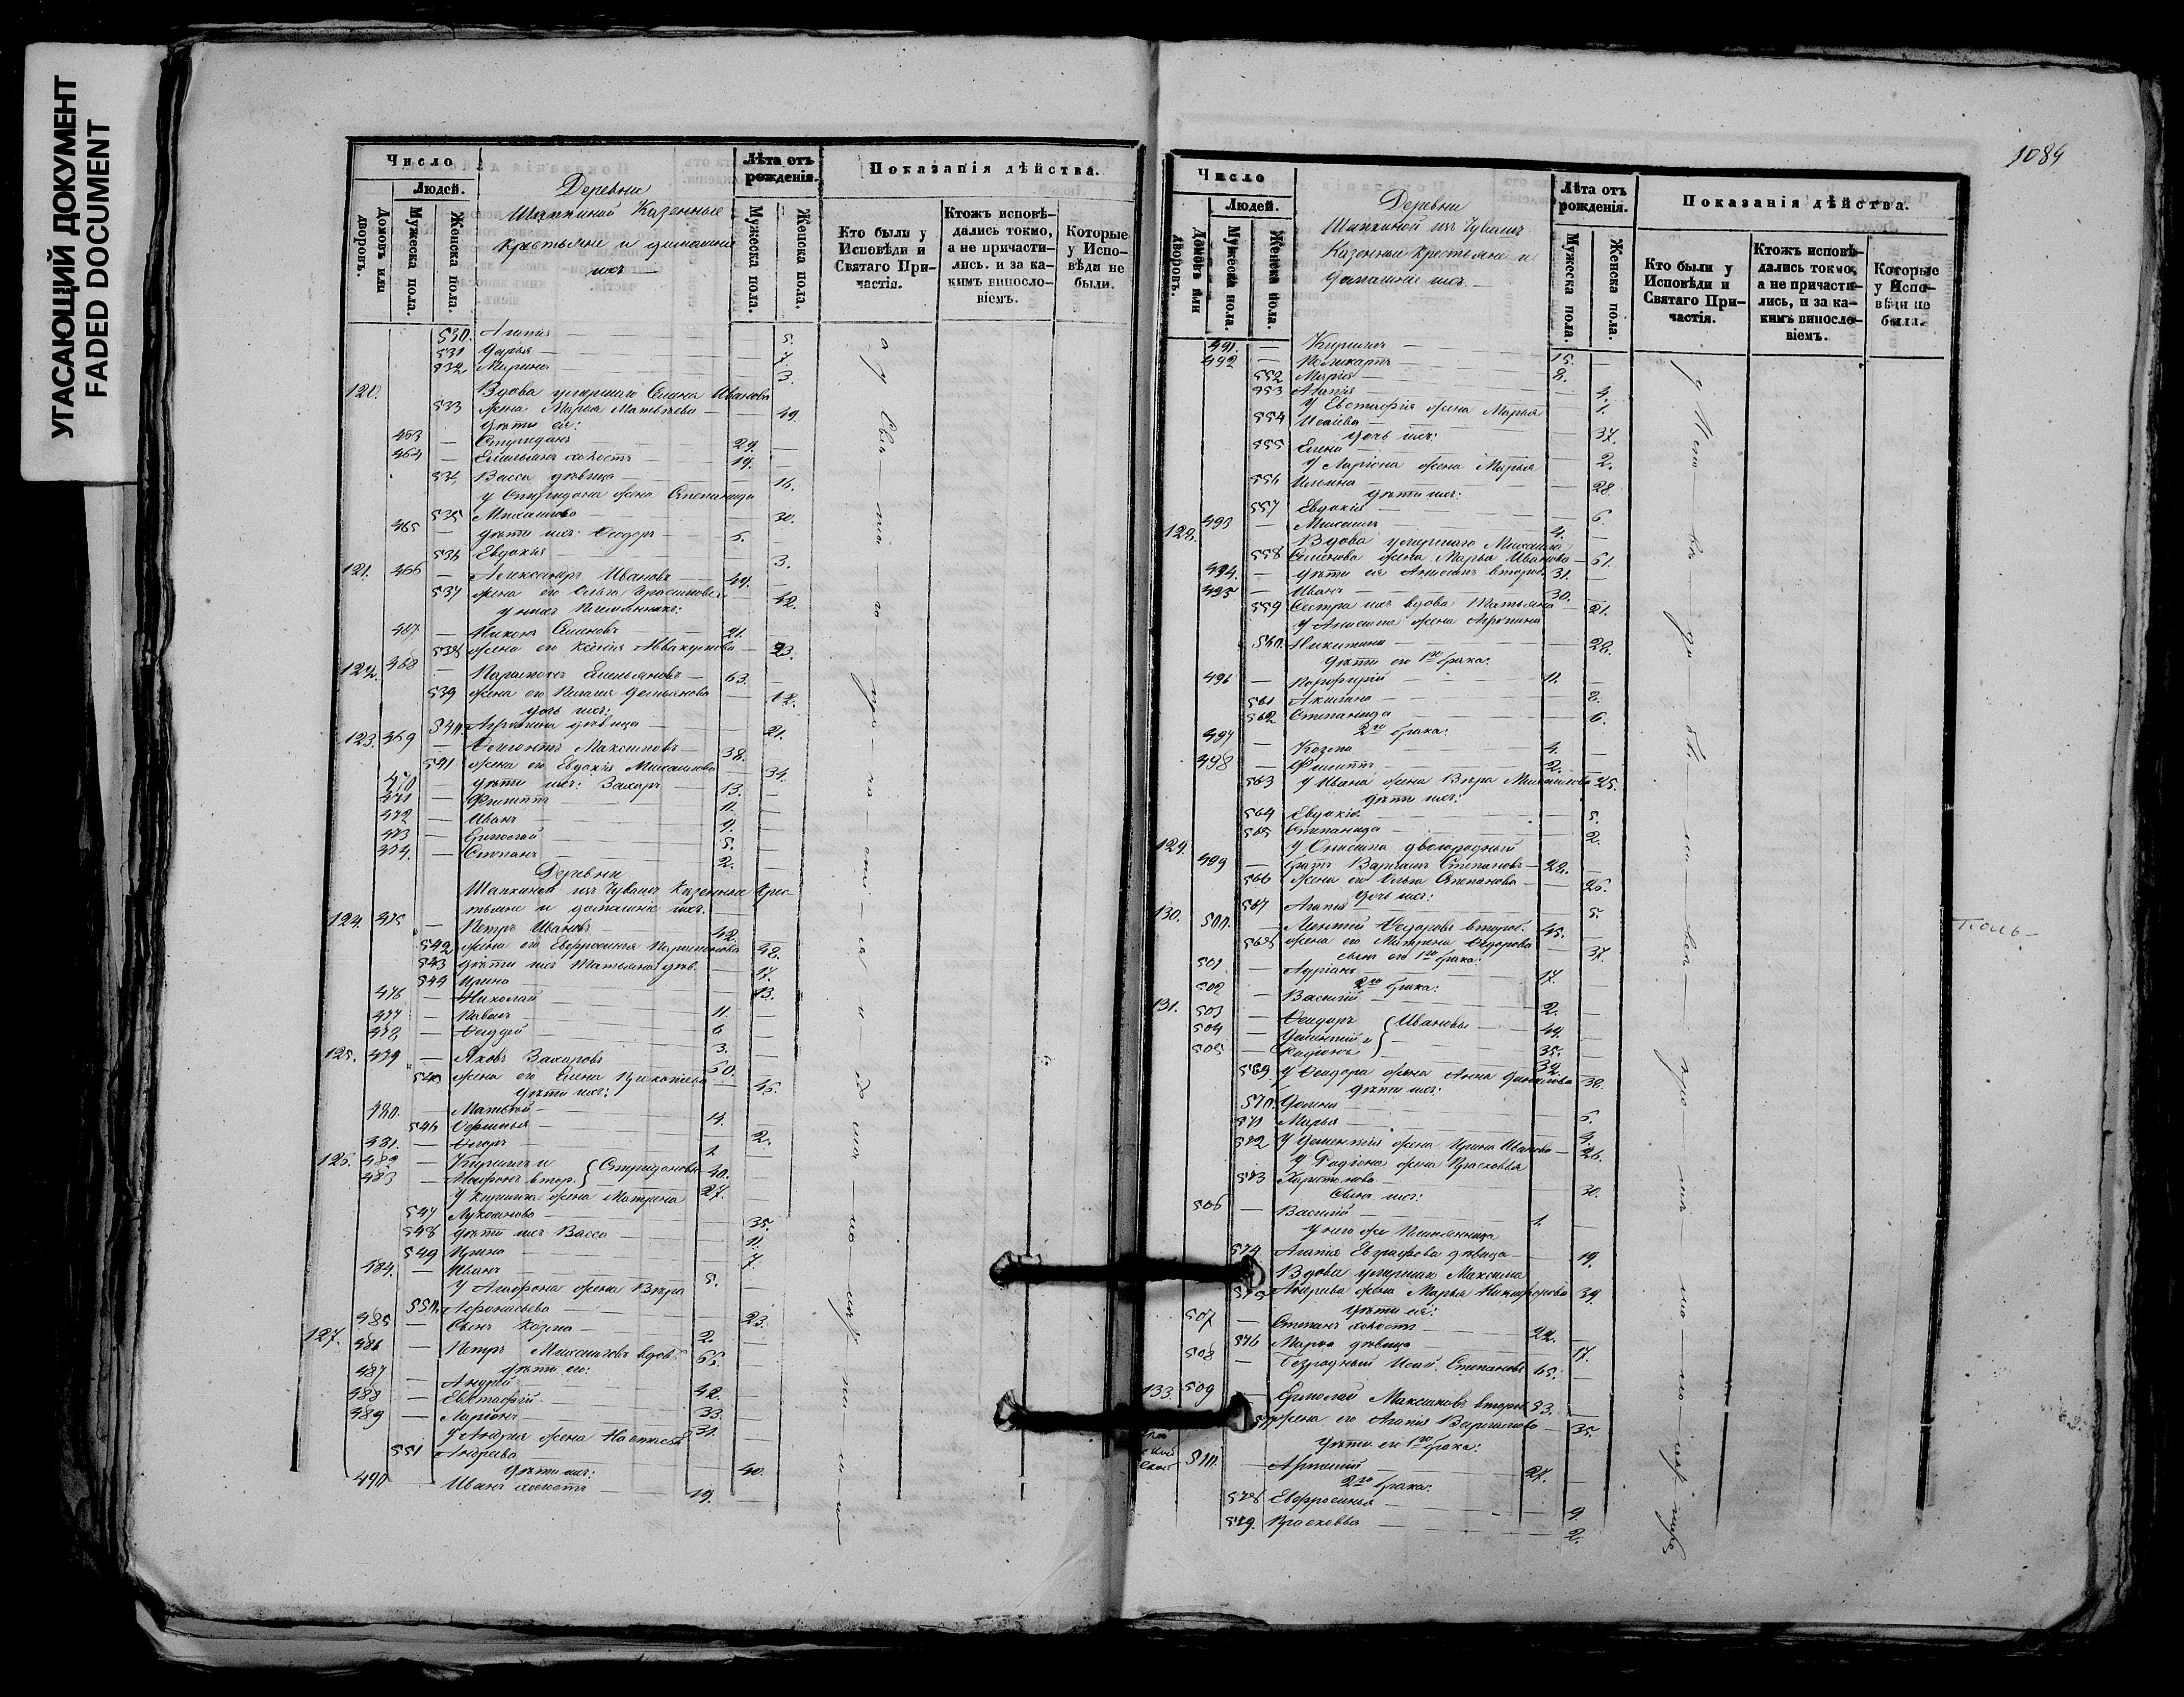 УГАСАЮЩИЙ ДОКУМЕНТ
FADED DOCUMENT
Число
Людей.
Домовъ или дворовъ.
Мужеска пола.
Женска пола.
Деревни
Шапкиной Казенные
крестьяне и домашніе
ихъ
Лѣта отъ рожденія.
Мужеска пола.
Женска пола.
Показанія дѣйства.
Кто были у Исповѣди и Святаго Причастія.
Ктожъ исповѣдались токмо, а не причастились. и за какимъ винословіемъ.
Которые у Исповѣди не были.
530. Агапія 5.
531 Дарья 7.
532 Марина 3.
120. Вдова умершаго Семена Иванова
533 жена Марья Матвѣева 49.
Дѣти ея:
463 Спиридонъ 29.
464 Емельянъ холостъ 19.
534 Васса дѣвица 16.
у Спиридона жена Степанида
535 Михайлова 30.
465 дѣти ихъ: Ѳеодоръ 5.
536 Евдокія 3.
121. 466 Александръ Ивановъ 44.
537 жена его Ольга Герасимова 42.
у нихъ племянникъ:
467 Никонъ Семеновъ 21.
538 жена его Ксенія Аввакумова 23.
122. 468 Парамонъ Емельяновъ 63.
539 жена его Пелагія Демьянова
дочь ихъ:
540. Агрипина дѣвица 21.
123. 469 Ѳеликтъ Максимовъ 38.
541 жена его Евдокія Михайлова 34.
470 дѣти ихъ: Захаръ 13.
471 Филиппъ 11.
472 Иванъ 9.
473 Ермолай 5.
474. Степанъ 2.
Деревни
Шапкиной изъ Чувашъ Казенные Крестьяне и домашніе ихъ.
124. 475 Петръ Ивановъ 42.
542 жена его Евфросинья Парамонова 48.
543 дѣти ихъ Татьяна дѣв. 17.
544 Ирина 13.
476 Николай 11.
477 Павелъ 6
478 Ѳаддей 3.
125. 479 Яковъ Захаровъ 50.
545 жена его Елена Прокопьева 45.
Дѣти ихъ:
480. Матвѣй 14.
546 Ѳеѳинья 2.
481. Егоръ 1.
126. 482 Кириллъ и
483 Агафонъ втор. } Спиридоновы 40. 27.
У Кирилла жена Матрена
547 Лукоянова 35.
548 дѣти ихъ Васса 11.
549 Ирина 7.
484. Иванъ 5.
У Агафона жена Вѣра
550. Афонасьева 23.
485 Сынъ Козма 2.
127. 486 Петръ Михайловъ вдовъ 65.
дѣти его:
487 Андрей 42.
488 Евстафій 33.
489 Ларіонъ 31.
У Андрея жена Настасья
551 Андреева 40.
Дѣти ихъ:
490 Иванъ холостъ 19.
1084
Число
Людей.
Домовъ или дворовъ.
Мужеска пола.
Женска пола.
Деревни
Шапкиной изъ Чувашъ
Казенные крестьяне и
домашніе ихъ.
Лѣта отъ рожденія.
Мужеска пола.
Женска пола.
Показанія дѣйства.
Кто были у Исповѣди и Святаго Причастія.
Ктожъ исповѣдались токмо, а не причастились, и за какимъ винословіемъ.
Которые у Исповѣди не были.
491. Кириллъ 15.
492 Поликарпъ 8.
552 Марія 4.
553 Агапія 1.
У Евстафія жена Марья
554 Исаева 37.
дочь ихъ:
555 Елена 2.
У Ларіона жена Марья
556 Ильина 28
дѣти ихъ:
557 Евдокія 6.
493 Михаилъ 4.
128. Вдова умершаго Михаила
558 Семенова жена Марья Иванова 61.
494. дѣти ея Анисимъ вторый 31.
495 Иванъ 30.
559 Сестра ихъ вдова Татьяна 21.
У Анисима жена Агрипина
560. Никитина 28.
Дѣти его 1го брака:
496 Порфирій 11.
561 Акилина 8.
562 Степанида 6.
2го брака:
497 Козма 4.
498 Филиппъ 2.
563 У Ивана жена Вѣра Михайлова 25.
Дѣти ихъ:
564 Евдокія 5.
565 Степанида 2.
129. У Онисима двоюродный
499 братъ Варламъ Степановъ 28.
566 жена его Ольга Степанова 25.
Дочь ихъ:
567 Агапія 5.
130. 500. Леонтій Ѳедоровъ второй 45.
568 жена его Матрена Ѳедорова 37.
сынъ его 1го брака:
501 Адріанъ 17.
2го брака:
502 Василій 2.
131. 503 Ѳеодоръ
504 Дементій и
505 Радіонъ } Ивановы 44. 35. 32.
569. У Ѳеодора жена Анна Данилова 38.
Дѣти ихъ:
570. Домна 5.
571 Марья 4.
572 У Дементія жена Ирина Иванова 26.
У Радіона жена Прасковья
573 Харитонова 30.
Сынъ ихъ:
506 Василій 1.
У него же племянница
574. Агапія Евграфова дѣвица 19.
Вдова умершаго Максима
575 Андреева жена Марья Никифорова 39.
Дѣти ея:
507 Степанъ холостъ 22.
576 Марѳа дѣвица 17.
508 Безродный Исай Степановъ 65.
133. 509 Ермолай Максимовъ вторый 53.
577 жена его Агапія Варламова 35.
Дѣти его 1го брака:
510. Артемій 27.
2го брака:
578 Евфросинья 9.
579. Прасковья 2.